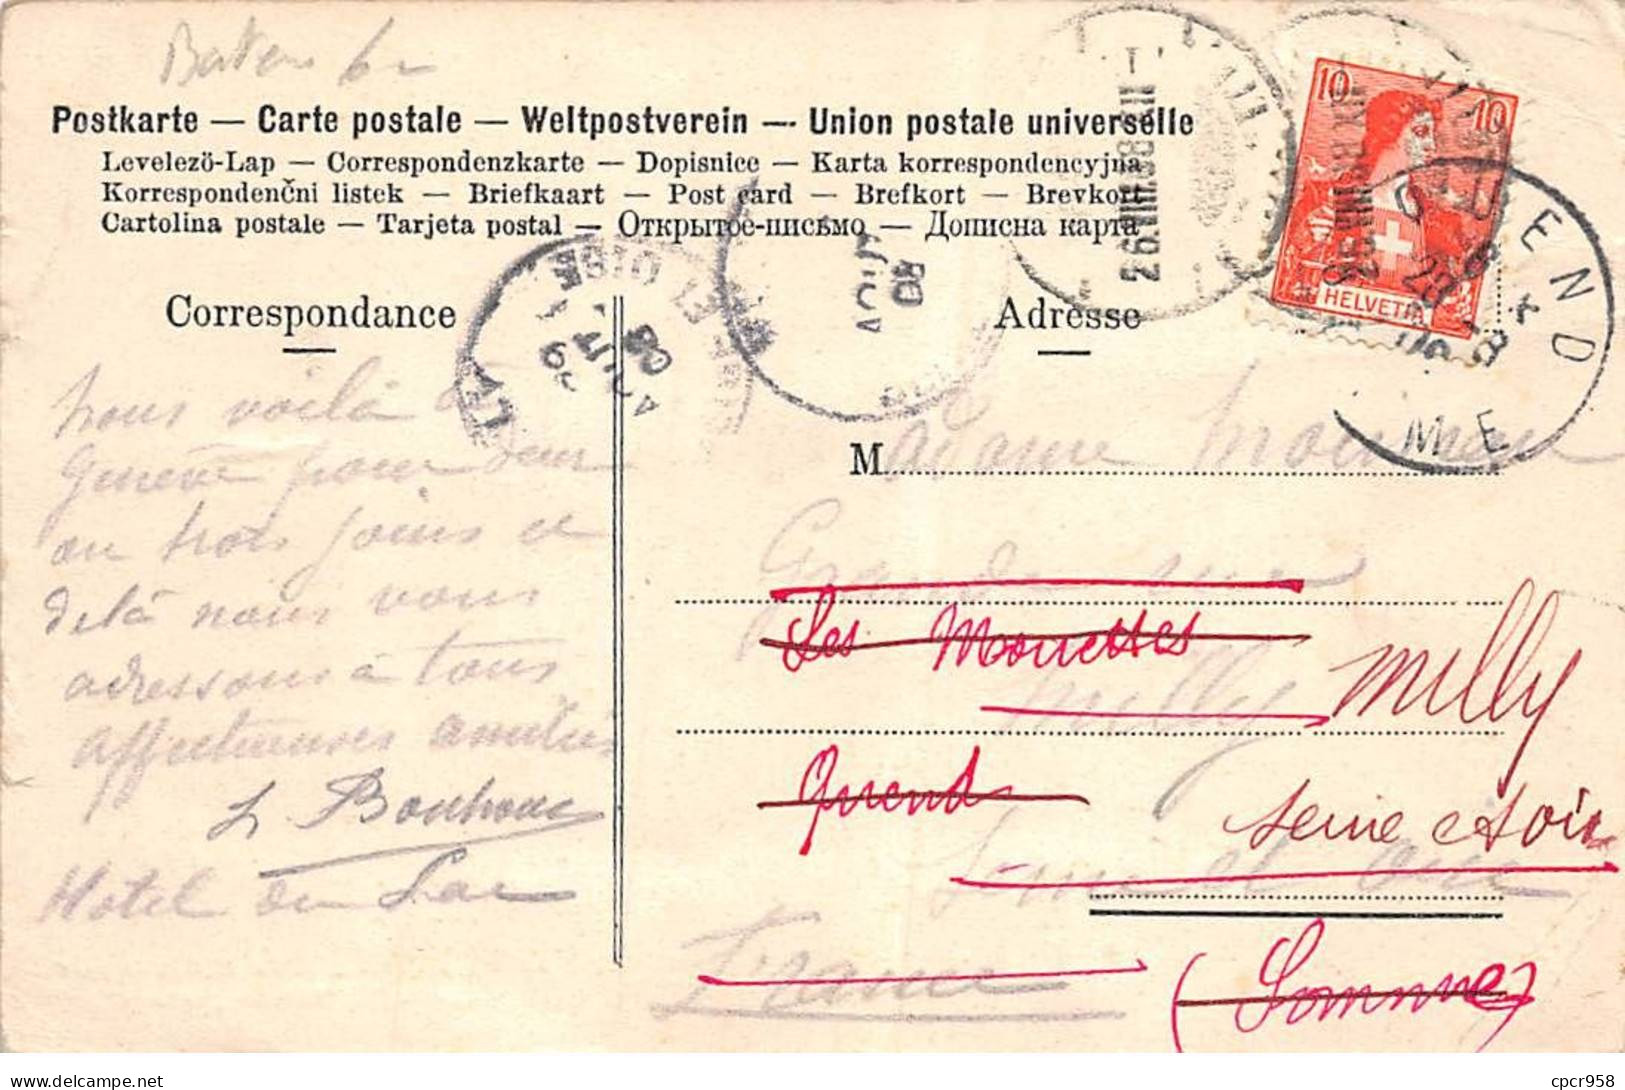 Postkarte — Carte postale — Weltpostverein — Union postale universelle
Levelező-Lap — Correspondenzkarte — Dopisnice — Karta korrespondencyjna
Korrespondenčni listek — Briefkaart — Post card — Brefkort — Brevkort
Cartolina postale — Tarjeta postal — Открытое-письмо — Дописна карта
10 10
HELVETIA
26.VIII.08.II
AOUT
08
QUEND
28 - 8
08
SOMME
Correspondance
Adresse
Nous voilà à
Genève pour deux
ou trois jours et
de là nous vous
adressons à tous
affectueuses amitiés
Hotel du Lac
Madame
Grande rue
Les Mouettes
Milly Milly
Quend
Seine et Oise
Seine et Oise
France
(Somme)
www.delcampe.net
cpcr958